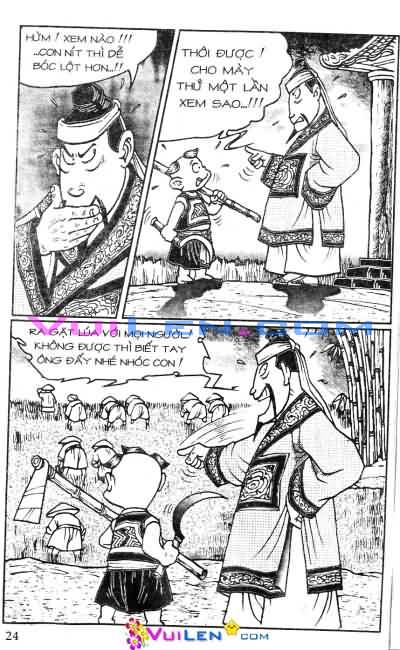 HỪM ! XEM NÀO !!!
...CON NÍT THÌ DỄ
BÓC LỘT HƠN..!!
THÔI ĐƯỢC !
CHO MÀY
THỬ MỘT LẦN
XEM SAO...!!!
VUILEN.COM
RA GẶT LÚA VỚI MỌI NGƯỜI.
KHÔNG ĐƯỢC THÌ BIẾT TAY
ÔNG ĐẤY NHÉ NHÓC CON !
24
VUILEN.COM